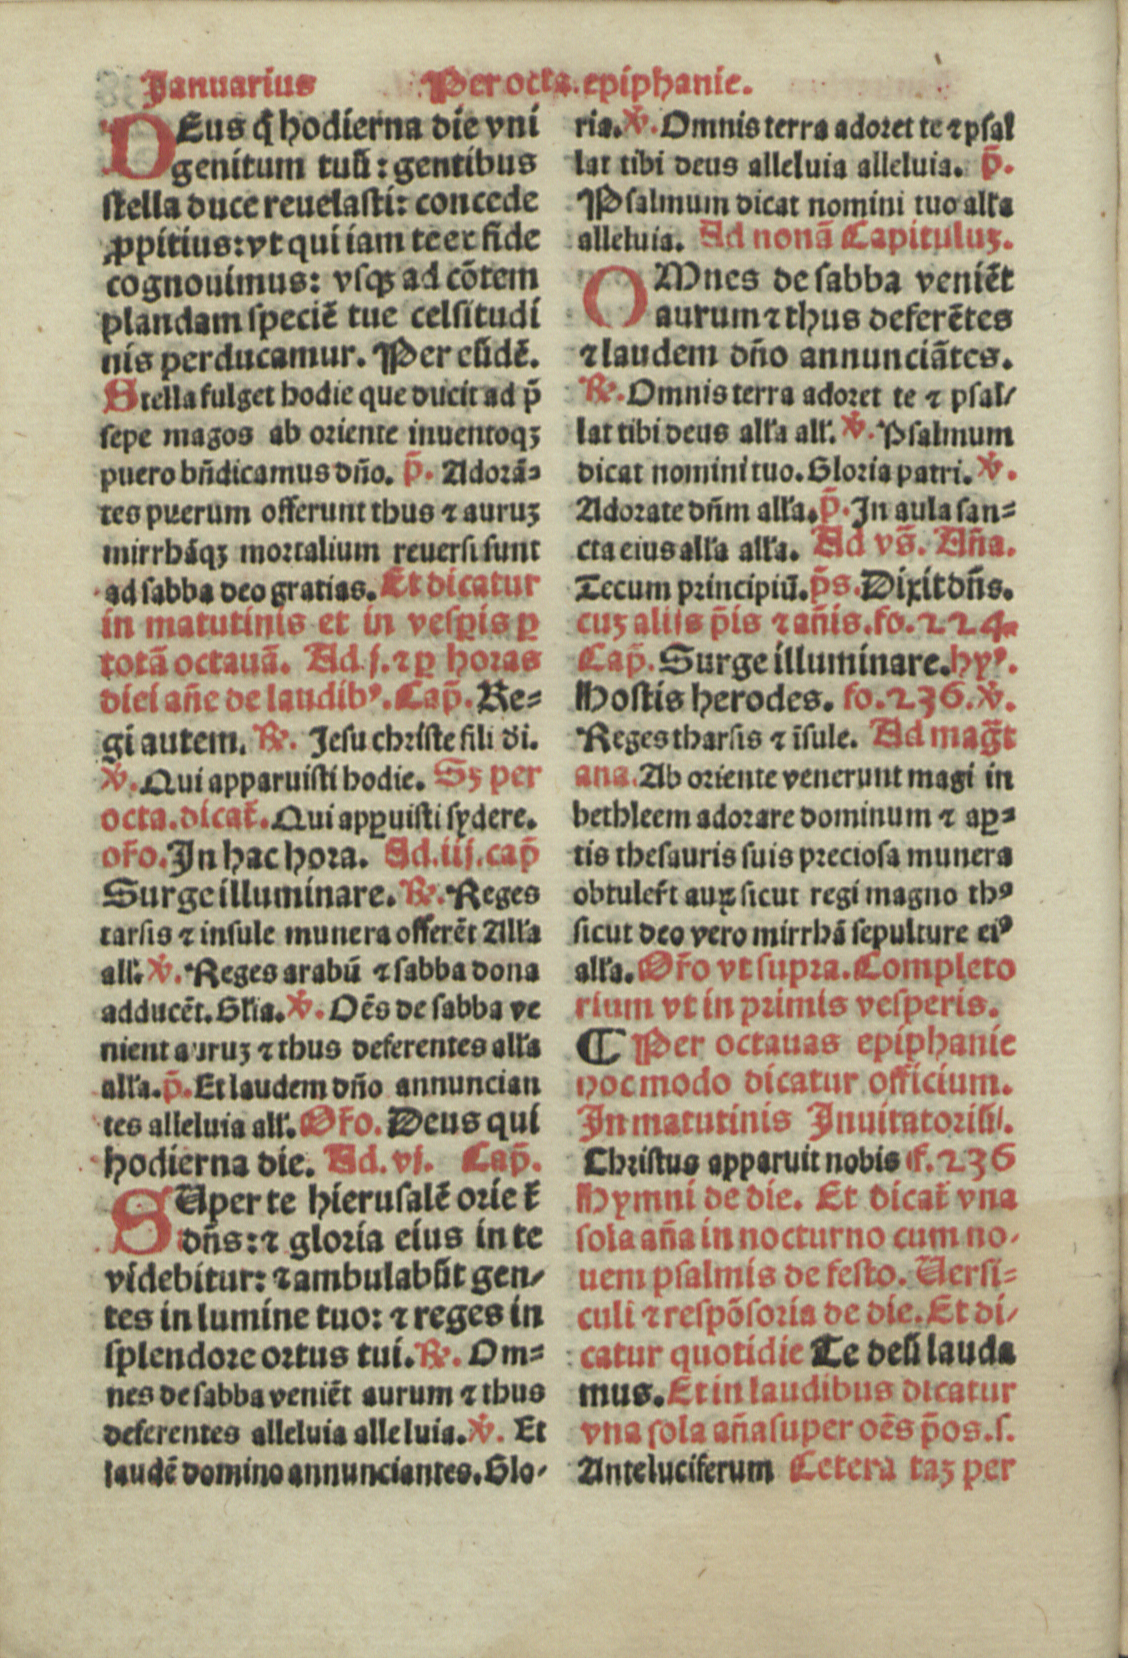 Januarius Per octa. epiphanie.
DEus q̃ hodierna die vni
genitum tuũ: gentibus
stella duce reuelasti: concede
ꝓpitius: vt qui iam te ex fide
cognouimus: vsqꝫ ad cõtem
plandam speciẽ tue celsitudi
nis perducamur. Per eũdẽ.
Stella fulget hodie que ducit ad p̃
sepe magos ab oriente inuentoqꝫ
puero bñdicamus dño. p̃. Adorã-
tes puerum offerunt thus ⁊ auruꝫ
mirrhãqꝫ mortalium reuersi sunt
ad sabba deo gratias. Et dicatur
in matutinis et in vesꝑis ꝑ
totã octauã. Ad .j. ⁊ ꝑ horas
diei añe de laudibꝰ. Cap̃. Re-
gi autem. ℟. Jesu christe fili di.
℣. Qui apparuisti hodie. Sꝫ per
octa. dicat̃. Qui apꝑuisti sydere.
or̃o. In hac hora. Ad .iij. cap̃
Surge illuminare. ℟. Reges
tarsis ⁊ insule munera offerẽt All'a
all'. ℣. Reges arabũ ⁊ sabba dona
adducẽt. Gl'ia. ℣. Oẽs de sabba ve
nient auruꝫ ⁊ thus deferentes all'a
all'a. p̃. Et laudem dño annuncian
tes alleluia all'. Or̃o. Deus qui
hodierna die. Ad .vj. Cap̃.
SUper te hierusalẽ oriet̃
dñs: ⁊ gloria eius in te
videbitur: ⁊ ambulabũt gen/
tes in lumine tuo: ⁊ reges in
splendore ortus tui. ℟. Om-
nes de sabba veniẽt aurum ⁊ thus
deferentes alleluia alleluia. ℣. Et
laudẽ domino annunciantes. Glo/
ria. ℣. Omnis terra adoret te ⁊ psal
lat tibi deus alleluia alleluia. p̃.
Psalmum dicat nomini tuo all'a
alleluia. Ad nonã Capituluꝫ.
OMnes de sabba veniẽt
aurum ⁊ thus deferẽtes
⁊ laudem dño annunciãtes.
℟. Omnis terra adoret te ⁊ psal/
lat tibi deus all'a all'. ℣. Psalmum
dicat nomini tuo. Gloria patri. ℣.
Adorate dñm all'a. p̃. In aula san-
cta eius all'a all'a. Ad vs̃. Añа.
Tecum principiũ. p̃s. Dixit dñs.
cuꝫ aliis p̃is ⁊ añis. fo. 224.
Cap̃. Surge illuminare. hyꝰ.
Hostis herodes. fo. 236. ℣.
Reges tharsis ⁊ ĩsule. Ad mag̃t
ana. Ab oriente venerunt magi in
bethleem adorare dominum ⁊ aꝑ-
tis thesauris suis preciosa munera
obtuler̃t auꝝ sicut regi magno thꝰ
sicut deo vero mirrhã sepulture eiꝰ
all'a. Or̃o vt supra. Completo
rium vt in primis vesperis.
¶ Per octauas epiphanie
hoc modo dicatur officium.
In matutinis Inuitatoriũ/.
Christus apparuit nobis f. 236
Hymni de die. Et dicat̃ vna
sola aña in nocturno cum no/
uem psalmis de festo. Uersi-
culi ⁊ respõsoria de die. Et di/
catur quotidie Te deũ lauda
mus. Et in laudibus dicatur
vna sola aña super oẽs p̃os. s.
Ante luciferum Cetera taꝫ per